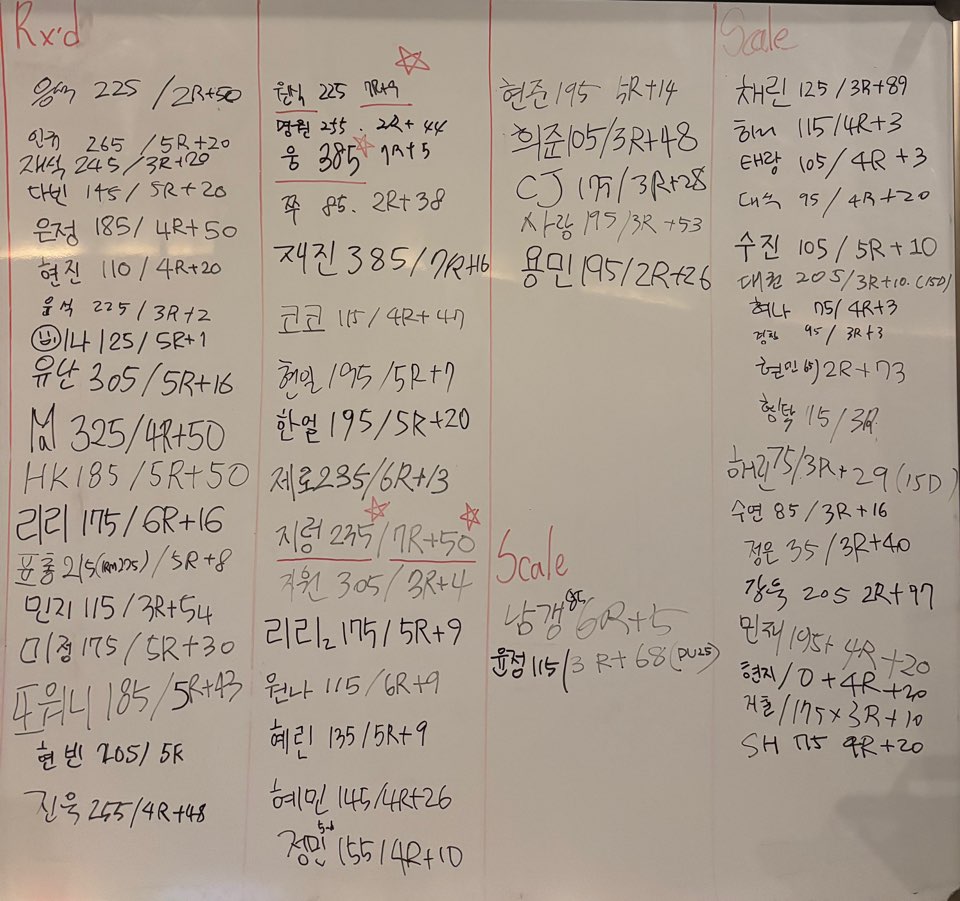 Rx'd
225 / 2R+50
인규 265 / 5R+20
재석 245 / 3R+20
다빈 145 / 5R+20
은정 185 / 4R+50
현진 110 / 4R+20
윤석 225 / 3R+2
삐나 125 / 5R+1
유난 305 / 5R+16
325/4R+50
HK 185 / 5R+50
리리 175 / 6R+16
215(1RM225) / 5R+8
민지 115 / 3R+54
미정 175 / 5R+30
포워니 185 / 5R+43
현빈 205 / 5R
진욱 255/4R+48
원식 225 7R+9
명원 255. 2R+44
웅 385 7R+5
쭈 85. 2R+38
재진 385 / 7R+16
코코 115 / 4R+47
헌일 195 / 5R+7
한얼 195 / 5R+20
제로 235/6R+13
지렁 235 / 7R+50
지원 305 / 3R+4
리리2 175 / 5R+9
원나 115 / 6R+9
혜린 135 / 5R+9
혜민 145/4R+26
정민 155 / 4R+10
현준 195 5R+14
희준 105 / 3R+48
CJ 175 / 3R+28
사랑 195 / 3R+53
용민 195 / 2R+26
Scale
남갱 85/ 6R+5
윤정 115 / 3R+68 (PU25)
Scale
채린 125 / 3R+89
115 / 4R+3
태랑 105 / 4R+3
95 / 4R+20
수진 105 / 5R+10
205 / 3R+10. (15D)
혀나 75 / 4R+3
95 / 3R+3
현민 65) 2R+73
형탁 15 / 3R
해린 75 / 3R+29 (15D)
수연 85 / 3R+16
정은 35 / 3R+40
205 2R+97
민재 195+ 4R+20
현지 / 0 + 4R+20
/ 175 x 3R+10
SH 4R+20